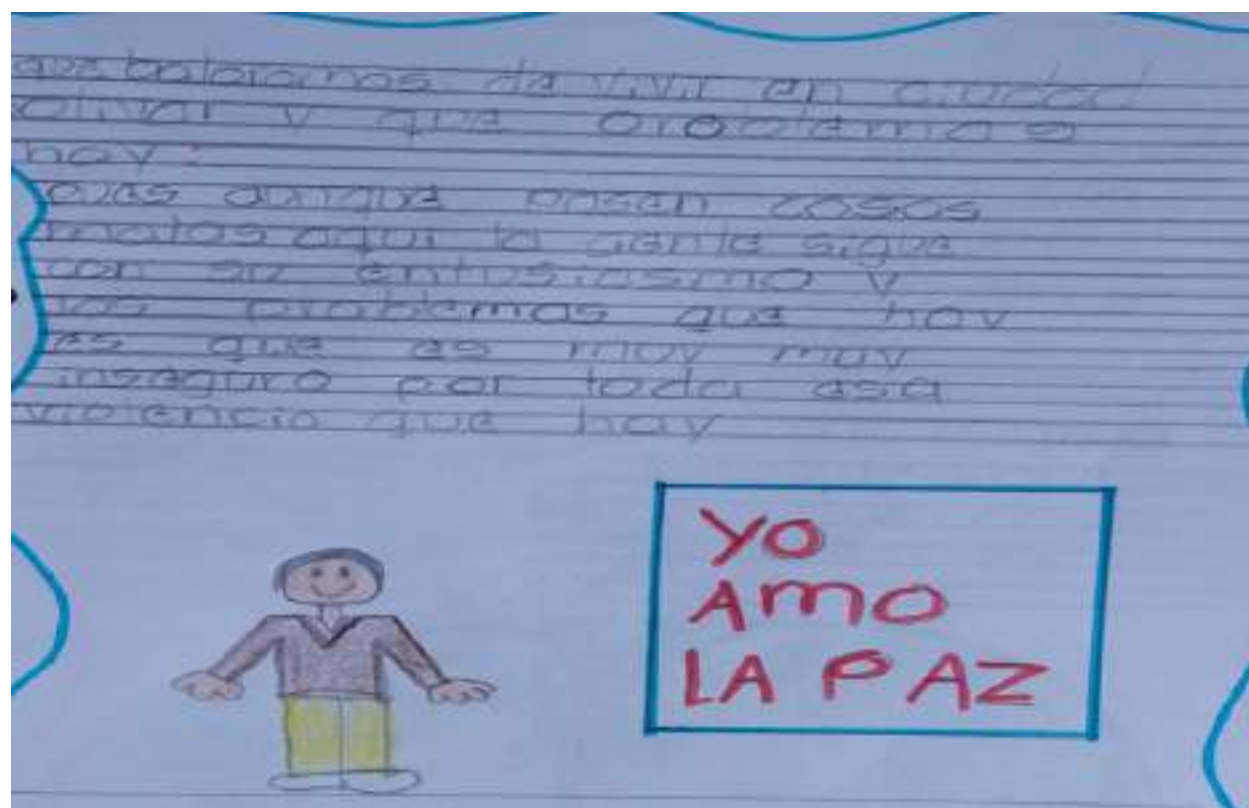 que baloramos de vivir en ciudad
bolivar y que problemas
hay:
pues aunque pasen cosas
malas aqui la gente sigue
con su entusiasmo y
los problemas que hay
es que es muy muy
inseguro por toda esa
violencia que hay
YO
AMO
LA PAZ